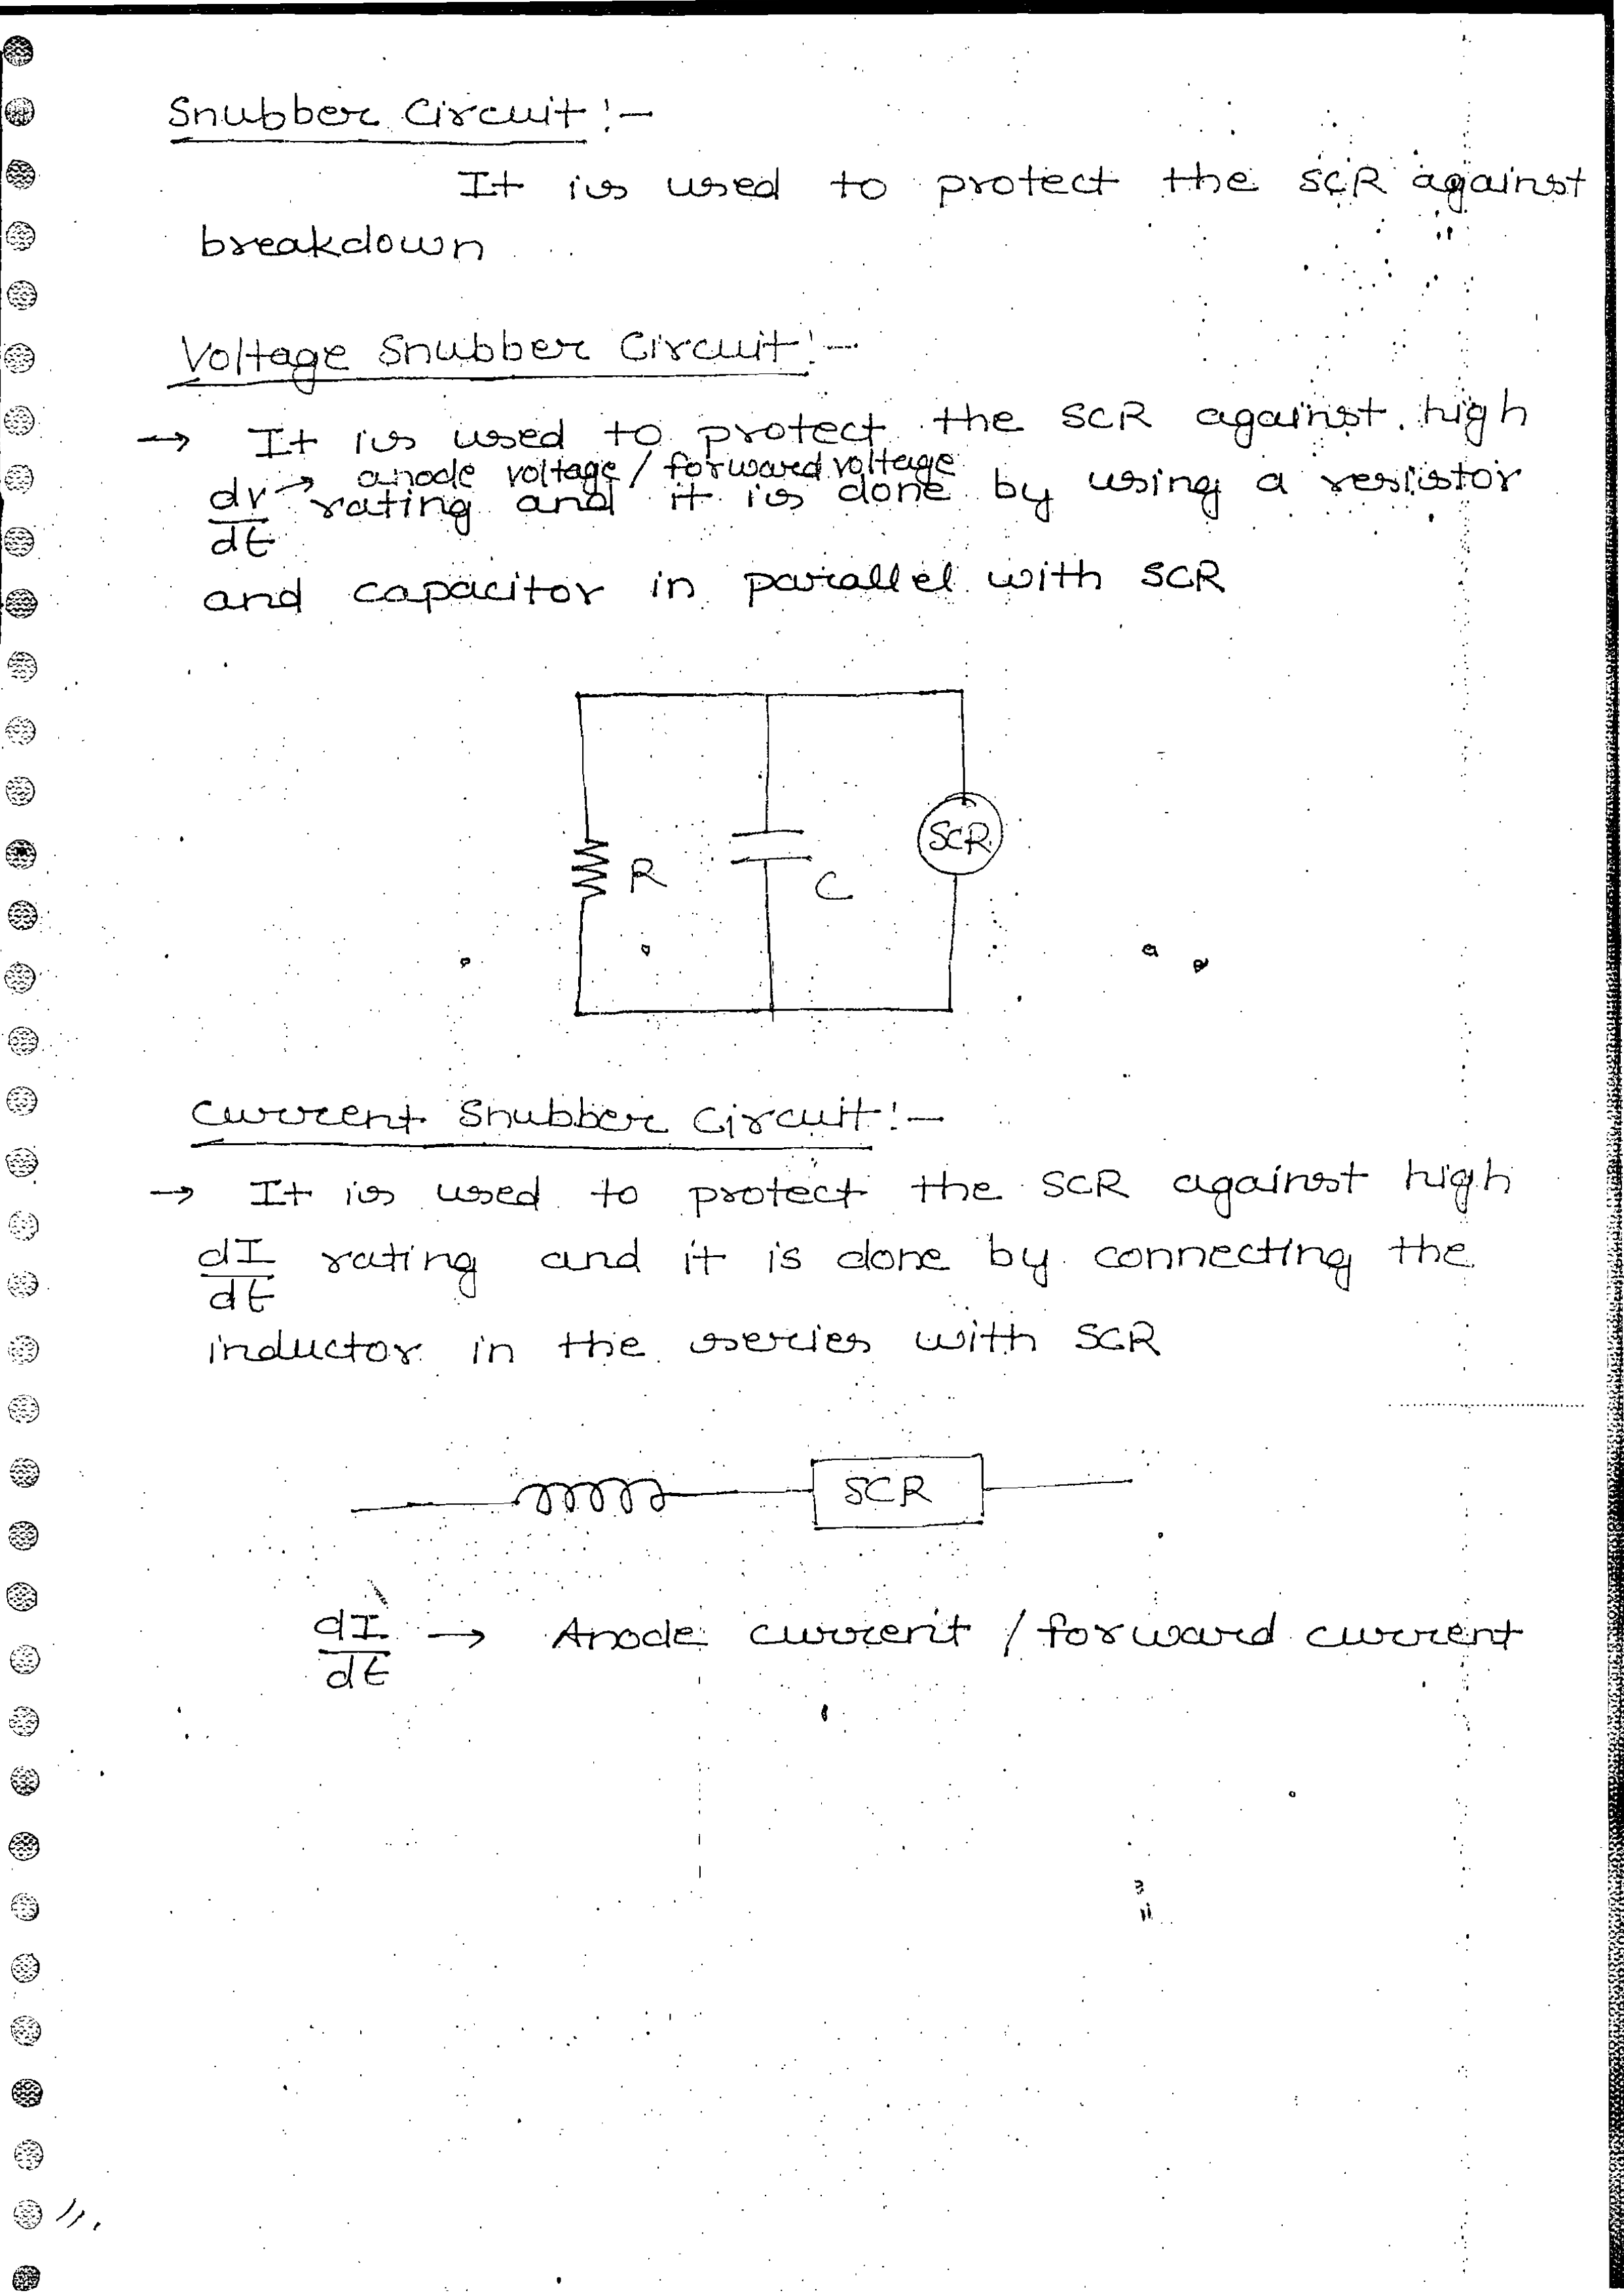 Snubber Circuit :-
It is used to protect the SCR against
breakdown
Voltage Snubber Circuit :-
→ It is used to protect the SCR against high
→ anode voltage / forward voltage
dv/dt rating and it is done by using a resistor
and capacitor in parallel with SCR
SCR
R
C
Current Snubber Circuit :-
→ It is used to protect the SCR against high
dI/dt rating and it is done by connecting the
inductor in the series with SCR
SCR
dI/dt → Anode current / forward current